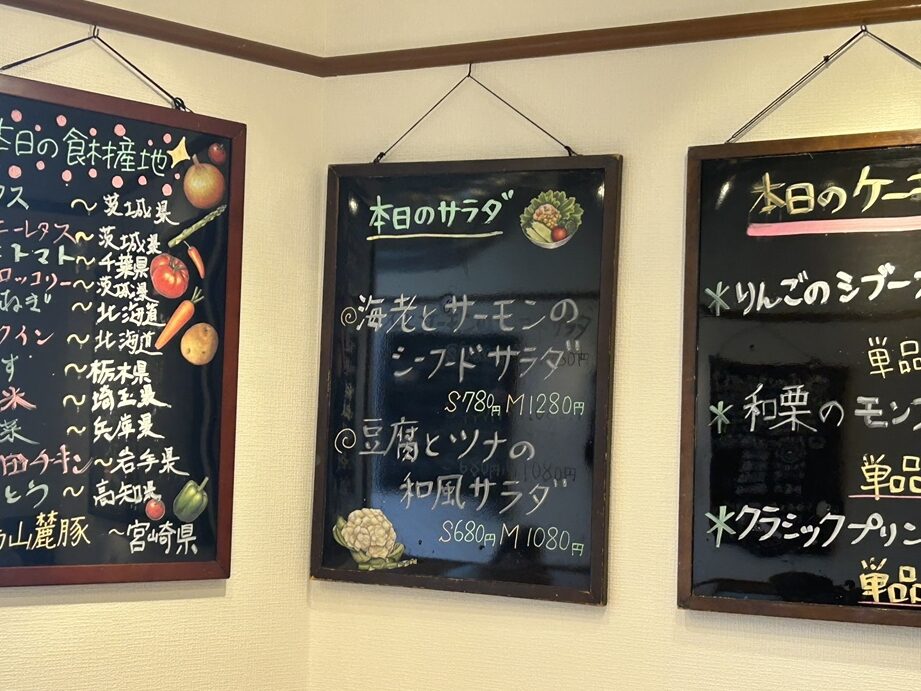 本日の食材産地
タス ~ 茨城県
ニーレタス ~ 茨城県
トマト ~ 千葉県
ロッコリー ~ 茨城県
ねぎ ~ 北海道
クイン ~ 北海道
す ~ 栃木県
米 ~ 埼玉県
菜 ~ 兵庫県
田チキン ~ 岩手県
とう ~ 高知県
山麓豚 ~ 宮崎県
本日のサラダ
海老とサーモンの
シーフードサラダ
S780円 M1280円
豆腐とツナの
和風サラダ
S680円 M1080円
本日のケー
*りんごのシブー
単品
*和栗のモン
単品
*クラシックプリン
単品